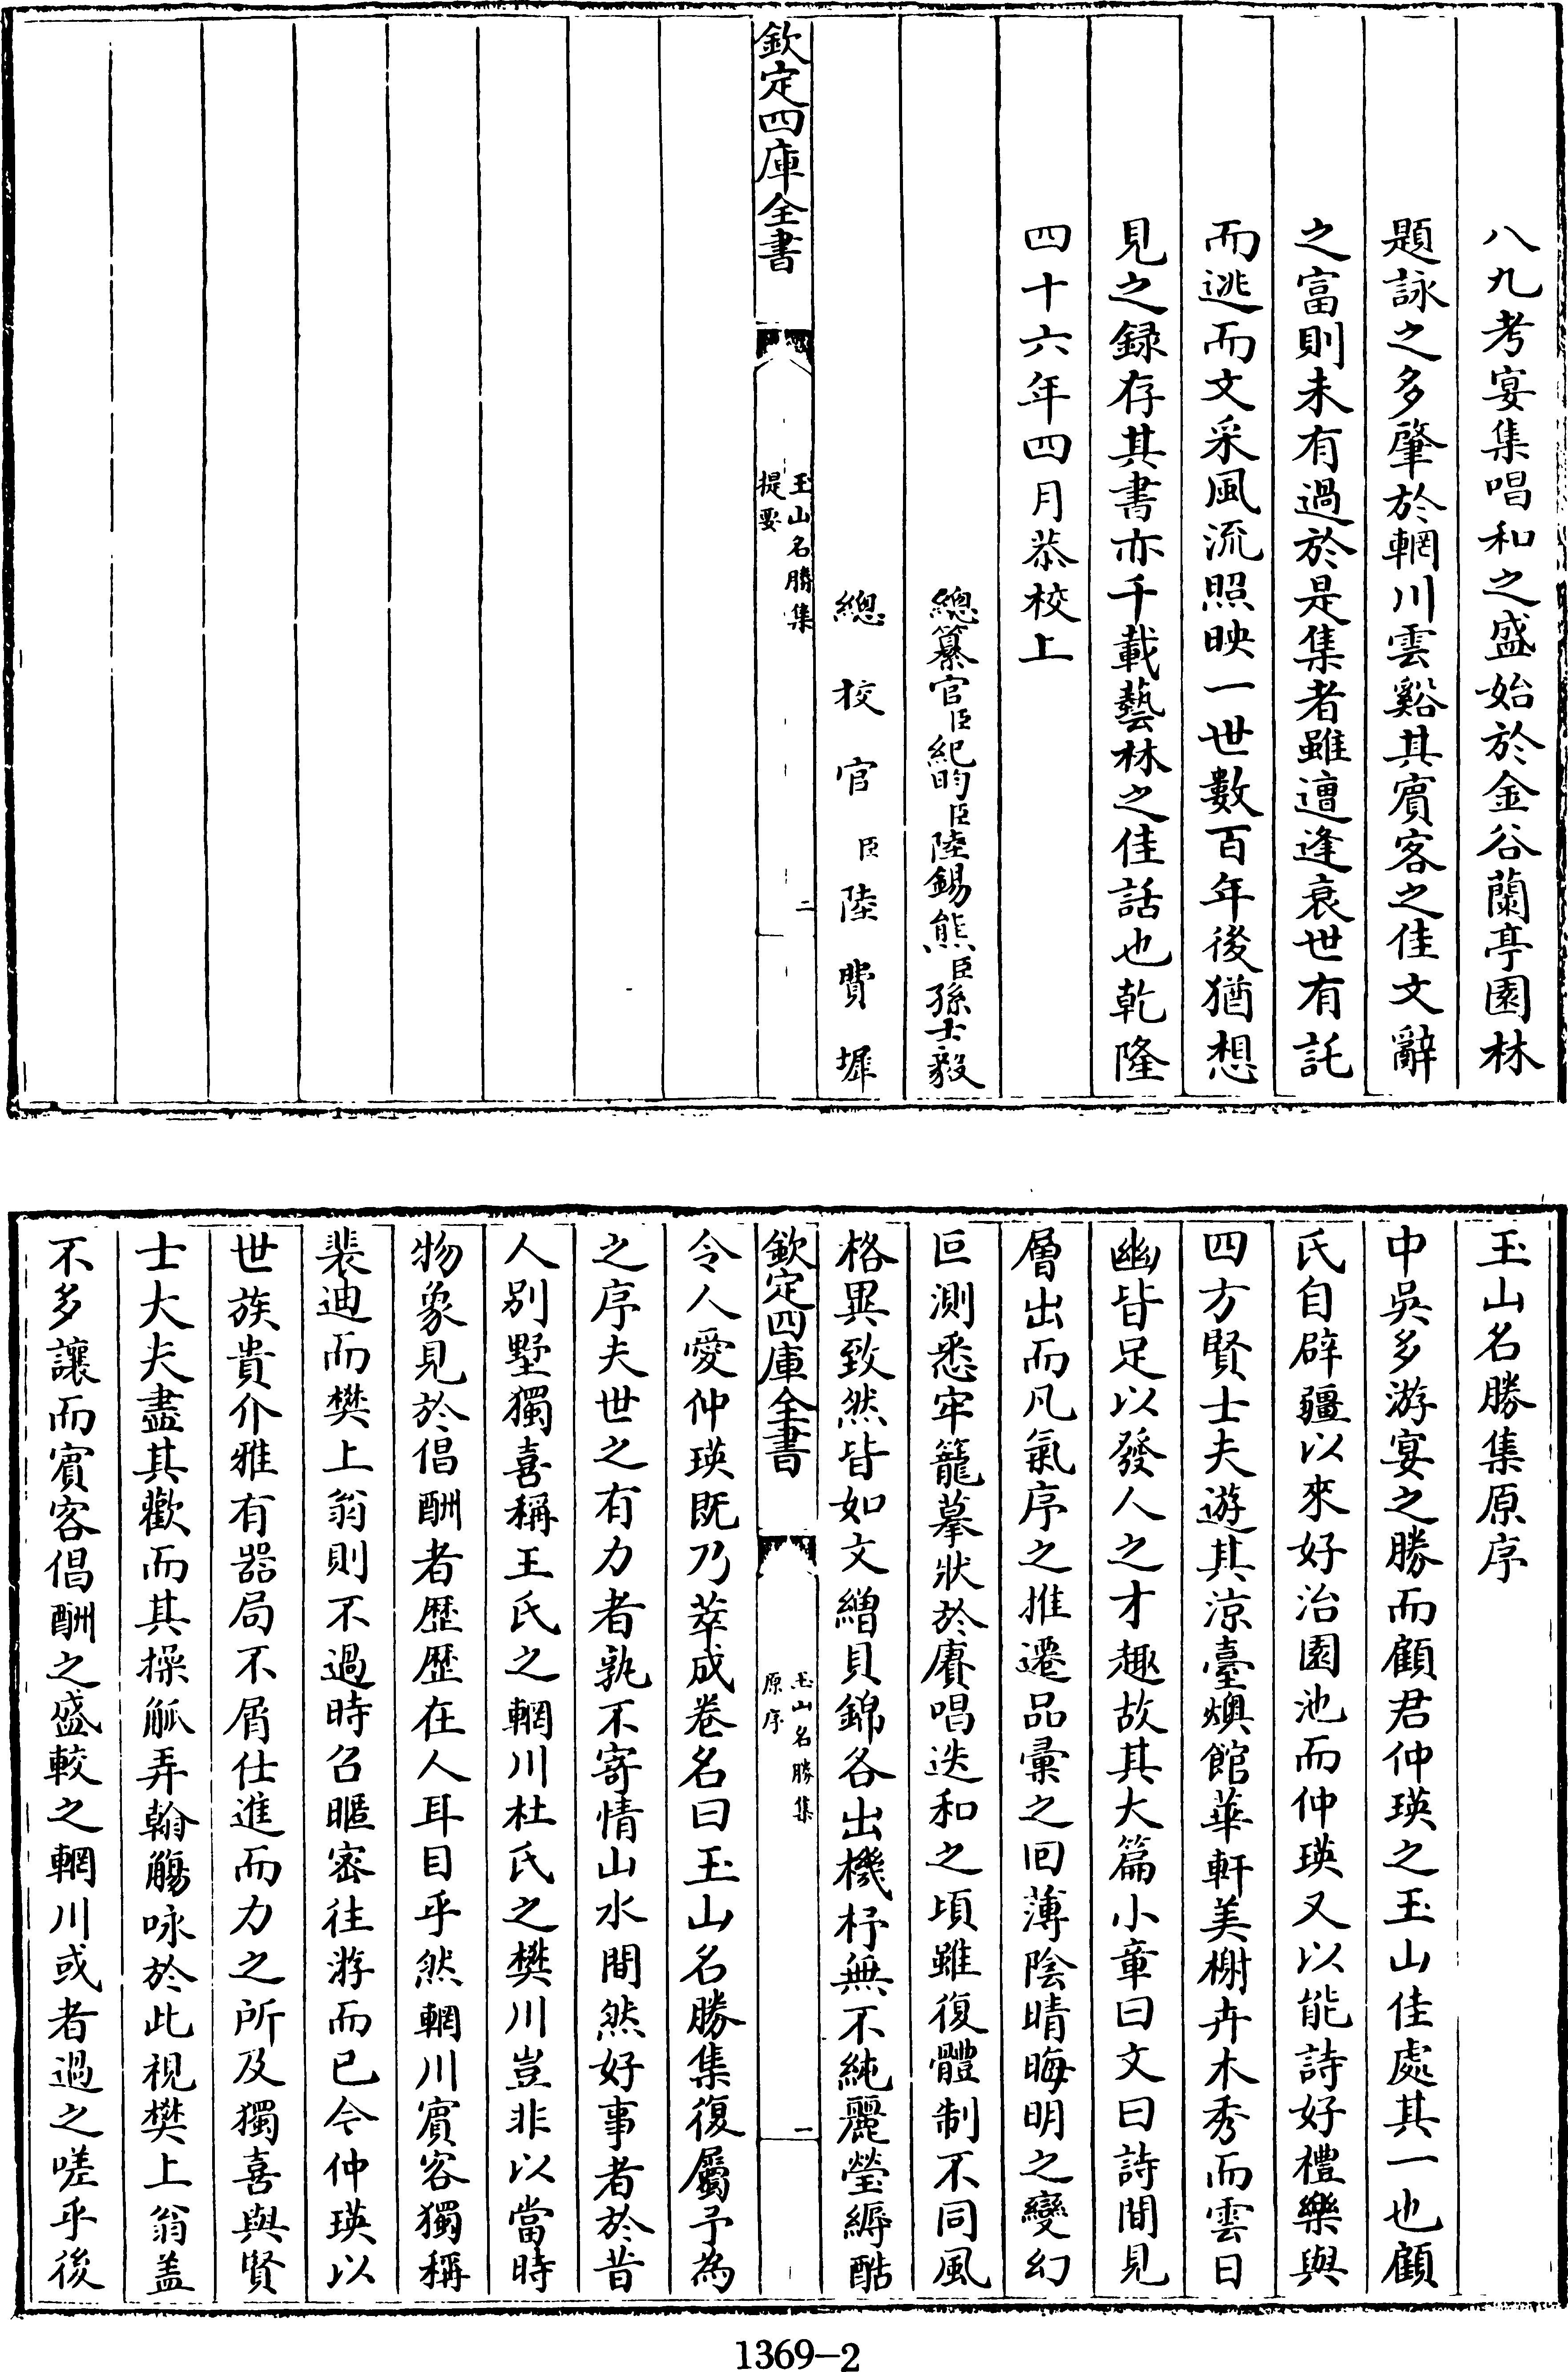 八九考宴集唱和之盛始於金谷蘭亭園林
題詠之多肇於輞川雲谿其賔客之佳文辭
之富則未有過於是集者雖遭逢衰世有託
而逃而文采風流照映一世數百年後猶想
見之録存其書亦千載藝林之佳話也乾隆
四十六年四月恭校上
總纂官臣紀昀臣陸錫熊臣孫士毅
總校官臣陸費墀
欽定四庫全書
玉山名勝集
提要
二
玉山名勝集原序
中吳多游宴之勝而顧君仲瑛之玉山佳處其一也顧
氏自辟疆以來好治園池而仲瑛又以能詩好禮樂與
四方賢士夫遊其涼臺燠館華軒美榭卉木秀而雲日
幽皆足以發人之才趣故其大篇小章曰文曰詩間見
層出而凡氣序之推遷品彚之囘薄陰晴晦明之變幻
叵測悉牢籠摹狀於賡唱迭和之頃雖復體制不同風
格異致然皆如文繒貝錦各出機杼無不純麗瑩縟酷
欽定四庫全書
玉山名勝集
原序
一
令人愛仲瑛既乃萃成卷名曰玉山名勝集復屬予為
之序夫世之有力者孰不寄情山水間然好事者於昔
人别墅獨喜稱王氏之輞川杜氏之樊川豈非以當時
物象見於倡酬者歴歴在人耳目乎然輞川賔客獨稱
裴迪而樊上翁則不過時召暱宻往游而已今仲瑛以
世族貴介雅有器局不屑仕進而力之所及獨喜與賢
士大夫盡其歡而其操觚弄翰觴咏於此視樊上翁盖
不多讓而賔客倡酬之盛較之輞川或者過之嗟乎後
1369-2